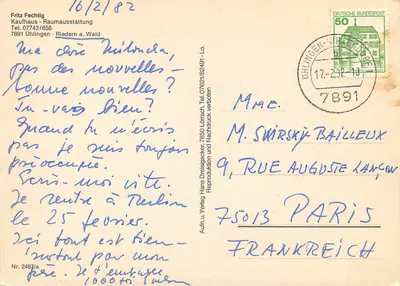 16/2/82
Fritz Fechtig
Kaufhaus - Raumausstattung
Tel. 07743/658
7891 Ühlingen - Riedern a. Wald
Ma chère
pas des nouvelles -
bonne nouvelles?
Tu vas bien?
Quand tu n'écris
pas je suis toujours
préoccupée.
Écris-moi vite.
Je rentre à Berlin
le 25 février.
Ici tout est bien -
surtout pour mon
père. Je t'embrasse
1000 fois
Nr. 2487/a
Aufn. u. Verlag Hans Dreisigacker, 7850 Lörrach, Tel. 07621/82491 - Lo.
Reproduktion und Nachdruck verboten
50
DEUTSCHE BUNDESPOST
17.-2.82.-10
7891
Mme.
M. SVIRSKY-BAILLEUX
9, RUE AUGUSTE LANÇON
75013 PARIS
FRANKREICH